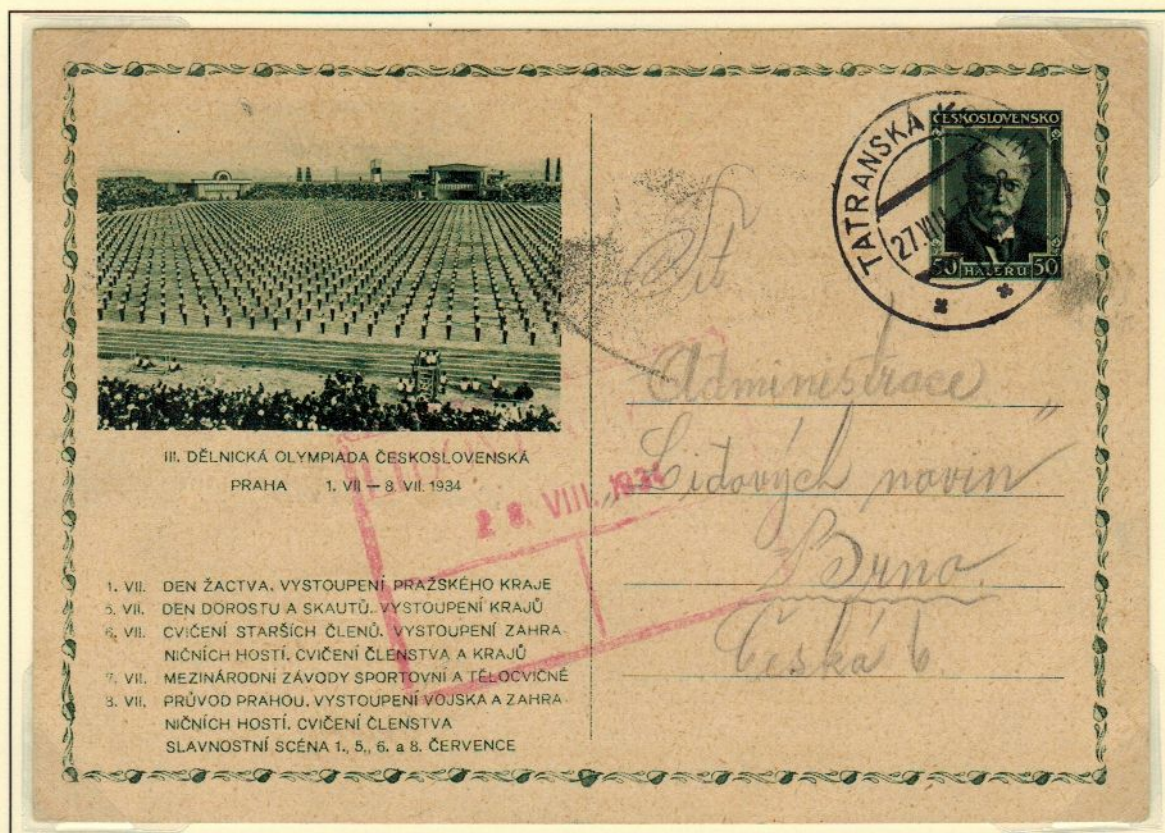 III. DĚLNICKÁ OLYMPIADA ČESKOSLOVENSKÁ
PRAHA 1. VII — 8. VII. 1934
1. VII. DEN ŽACTVA. VYSTOUPENÍ PRAŽSKÉHO KRAJE
5. VII. DEN DOROSTU A SKAUTŮ. VYSTOUPENÍ KRAJŮ
6. VII. CVIČENÍ STARŠÍCH ČLENŮ. VYSTOUPENÍ ZAHRA-
NIČNÍCH HOSTÍ. CVIČENÍ ČLENSTVA A KRAJŮ
7. VII. MEZINÁRODNÍ ZÁVODY SPORTOVNÍ A TĚLOCVIČNÉ
8. VII. PRŮVOD PRAHOU. VYSTOUPENÍ VOJSKA A ZAHRA-
NIČNÍCH HOSTÍ. CVIČENÍ ČLENSTVA
SLAVNOSTNÍ SCÉNA 1., 5., 6. a 8. ČERVENCE
28. VIII. 1934
TATRANSKÁ
27. VIII
ČESKOSLOVENSKO
50 HALÉŘŮ 50
Administrace
„Lidových novin"
Brno.
Česká 6